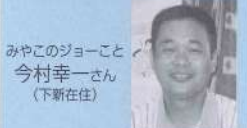 みやこのジョーこと
今村幸一さん
(下新在住)